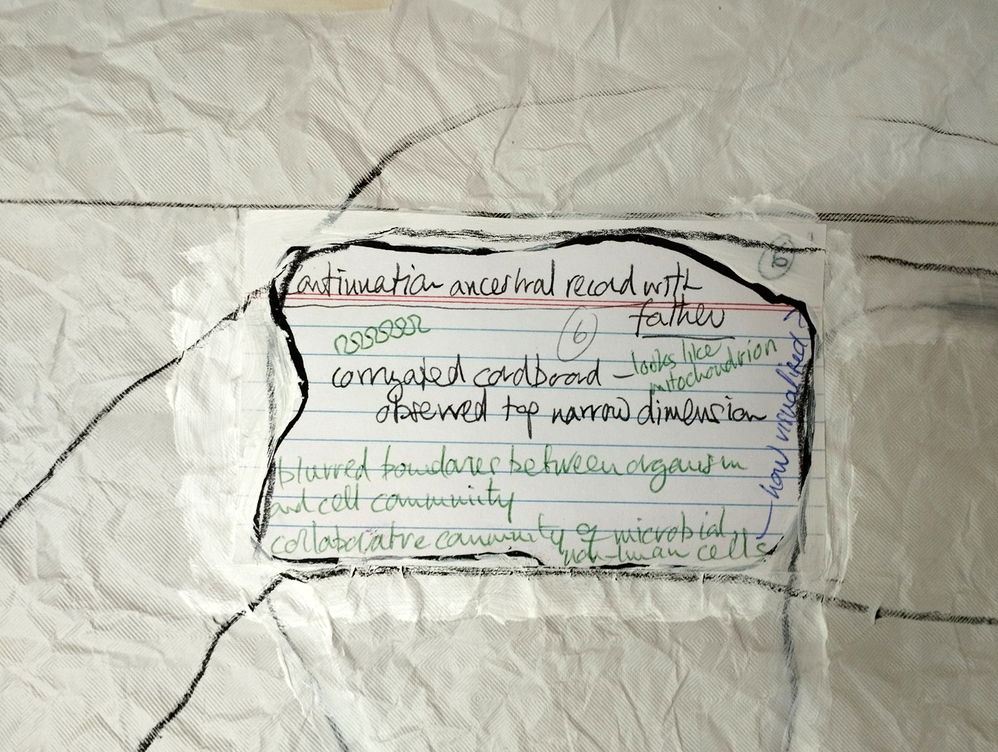 Continuation ancestral record with
father
6
corrugated cardboard – looks like
mitochondrion
observed top narrow dimension
blurred boundaries between organism
and cell community
collaborative community of microbial,
non-human cells
how visualized?